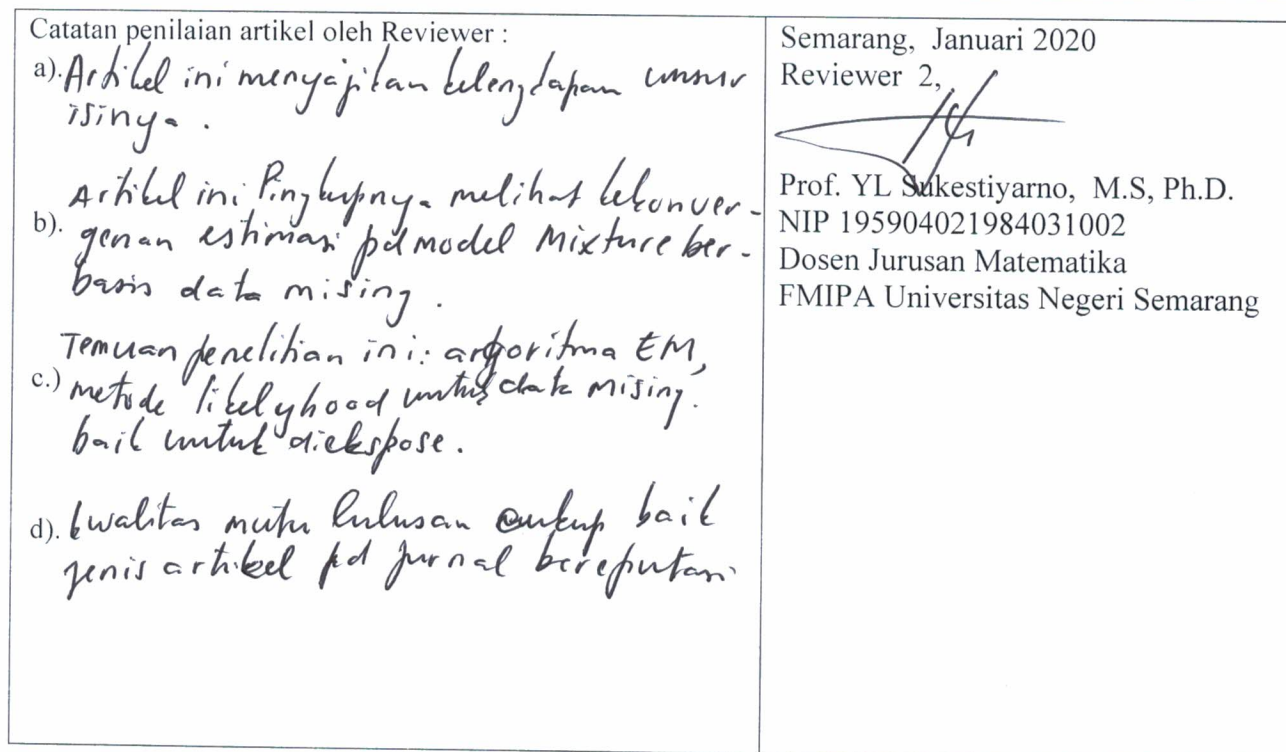 Catatan penilaian artikel oleh Reviewer :
a). Artikel ini menyajikan kelengkapan unsur
isinya.
Artikel ini lingkupnya melihat kekonver-
b). genan estimasi pd model Mixture ber-
basis data mising.
Temuan penelitian ini: argoritma EM,
c.) metode likelyhood untuk data mising.
baik untuk diekspose.
d). kwalitas mutu lulusan cukup baik
jenis artikel pd jurnal bereputasi
Semarang, Januari 2020
Reviewer 2,
Prof. YL Sukestiyarno, M.S, Ph.D.
NIP 195904021984031002
Dosen Jurusan Matematika
FMIPA Universitas Negeri Semarang